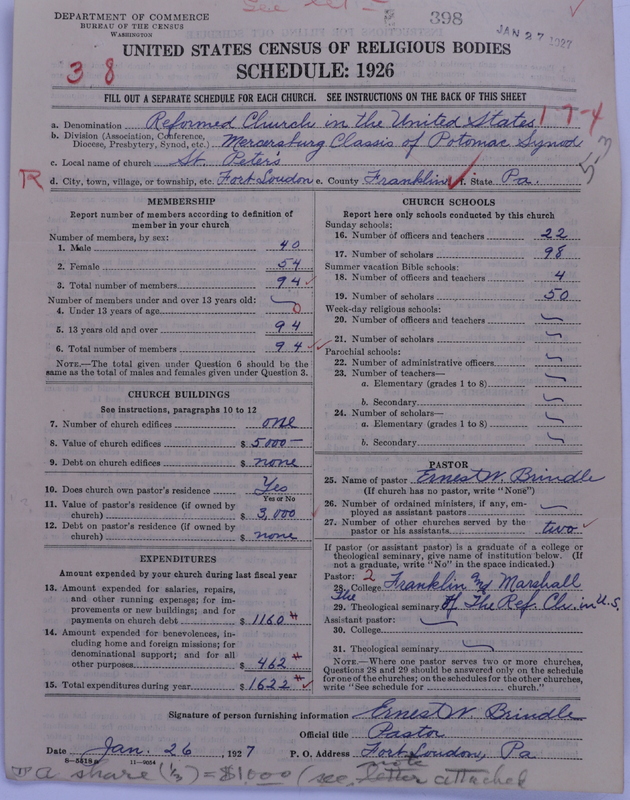 See let
DEPARTMENT OF COMMERCE
BUREAU OF THE CENSUS
WASHINGTON
398
JAN 27 1927
UNITED STATES CENSUS OF RELIGIOUS BODIES
38
SCHEDULE: 1926
FILL OUT A SEPARATE SCHEDULE FOR EACH CHURCH. SEE INSTRUCTIONS ON THE BACK OF THIS SHEET
a. Denomination Reformed Church in the United States 1-7-4
b. Division (Association, Conference, Diocese, Presbytery, Synod, etc.) Mercersburg Classis of Potomac Synod
c. Local name of church St. Peter's
5-3
R d. City, town, village, or township, etc. Fort Loudon e. County Franklin f. State Pa.
MEMBERSHIP
Report number of members according to definition of
member in your church
Number of members, by sex:
1. Male 40
2. Female 54
3. Total number of members 94
Number of members under and over 13 years old:
4. Under 13 years of age 0
5. 13 years old and over 94
6. Total number of members 94
NOTE.—The total given under Question 6 should be
same as the total of males and females given under Question 3.
CHURCH BUILDINGS
See instructions, paragraphs 10 to 12
7. Number of church edifices one
8. Value of church edifices $ 5000—
9. Debt on church edifices $ none
10. Does church own pastor's residence Yes
Yes or No
11. Value of pastor's residence (if owned by
church) $ 3,000
12. Debt on pastor's residence (if owned by
church) $ none
EXPENDITURES
Amount expended by your church during last fiscal year
13. Amount expended for salaries, repairs,
and other running expenses; for im-
provements or new buildings; and for
payments on church debt $ 1160
14. Amount expended for benevolences, in-
cluding home and foreign missions; for
denominational support; and for all
other purposes $ 462
15. Total expenditures during year $ 1622
CHURCH SCHOOLS
Report here only schools conducted by this church
Sunday schools:
16. Number of officers and teachers 22
17. Number of scholars 98
Summer vacation Bible schools:
18. Number of officers and teachers 4
19. Number of scholars 50
Week-day religious schools:
20. Number of officers and teachers
21. Number of scholars
Parochial schools:
22. Number of administrative officers
23. Number of teachers—
a. Elementary (grades 1 to 8)
b. Secondary
24. Number of scholars—
a. Elementary (grades 1 to 8)
b. Secondary
PASTOR
25. Name of pastor Ernest W. Brindle
(If church has no pastor, write "None")
26. Number of ordained ministers, if any, em-
ployed as assistant pastors
27. Number of other churches served by the
pastor or his assistants two
If pastor (or assistant pastor) is a graduate of a college or
theological seminary, give name of institution below. (If
not a graduate, write "No" in the space indicated.)
Pastor: 2
28. College Franklin and Marshall
29. Theological seminary The of The Ref. Ch. in U.S.
Assistant pastor:
30. College
31. Theological seminary
NOTE.—Where one pastor serves two or more churches,
Questions 28 and 29 should be answered only on the schedule
for one of the churches; on the schedules for the other churches,
write "See schedule for church."
Signature of person furnishing information Ernest W. Brindle
Official title Pastor
Date Jan. 26, 1927 P. O. Address Fort Loudon, Pa
8—5318 a 11—9054
a share (1/3) = $1000 (see note letter attached